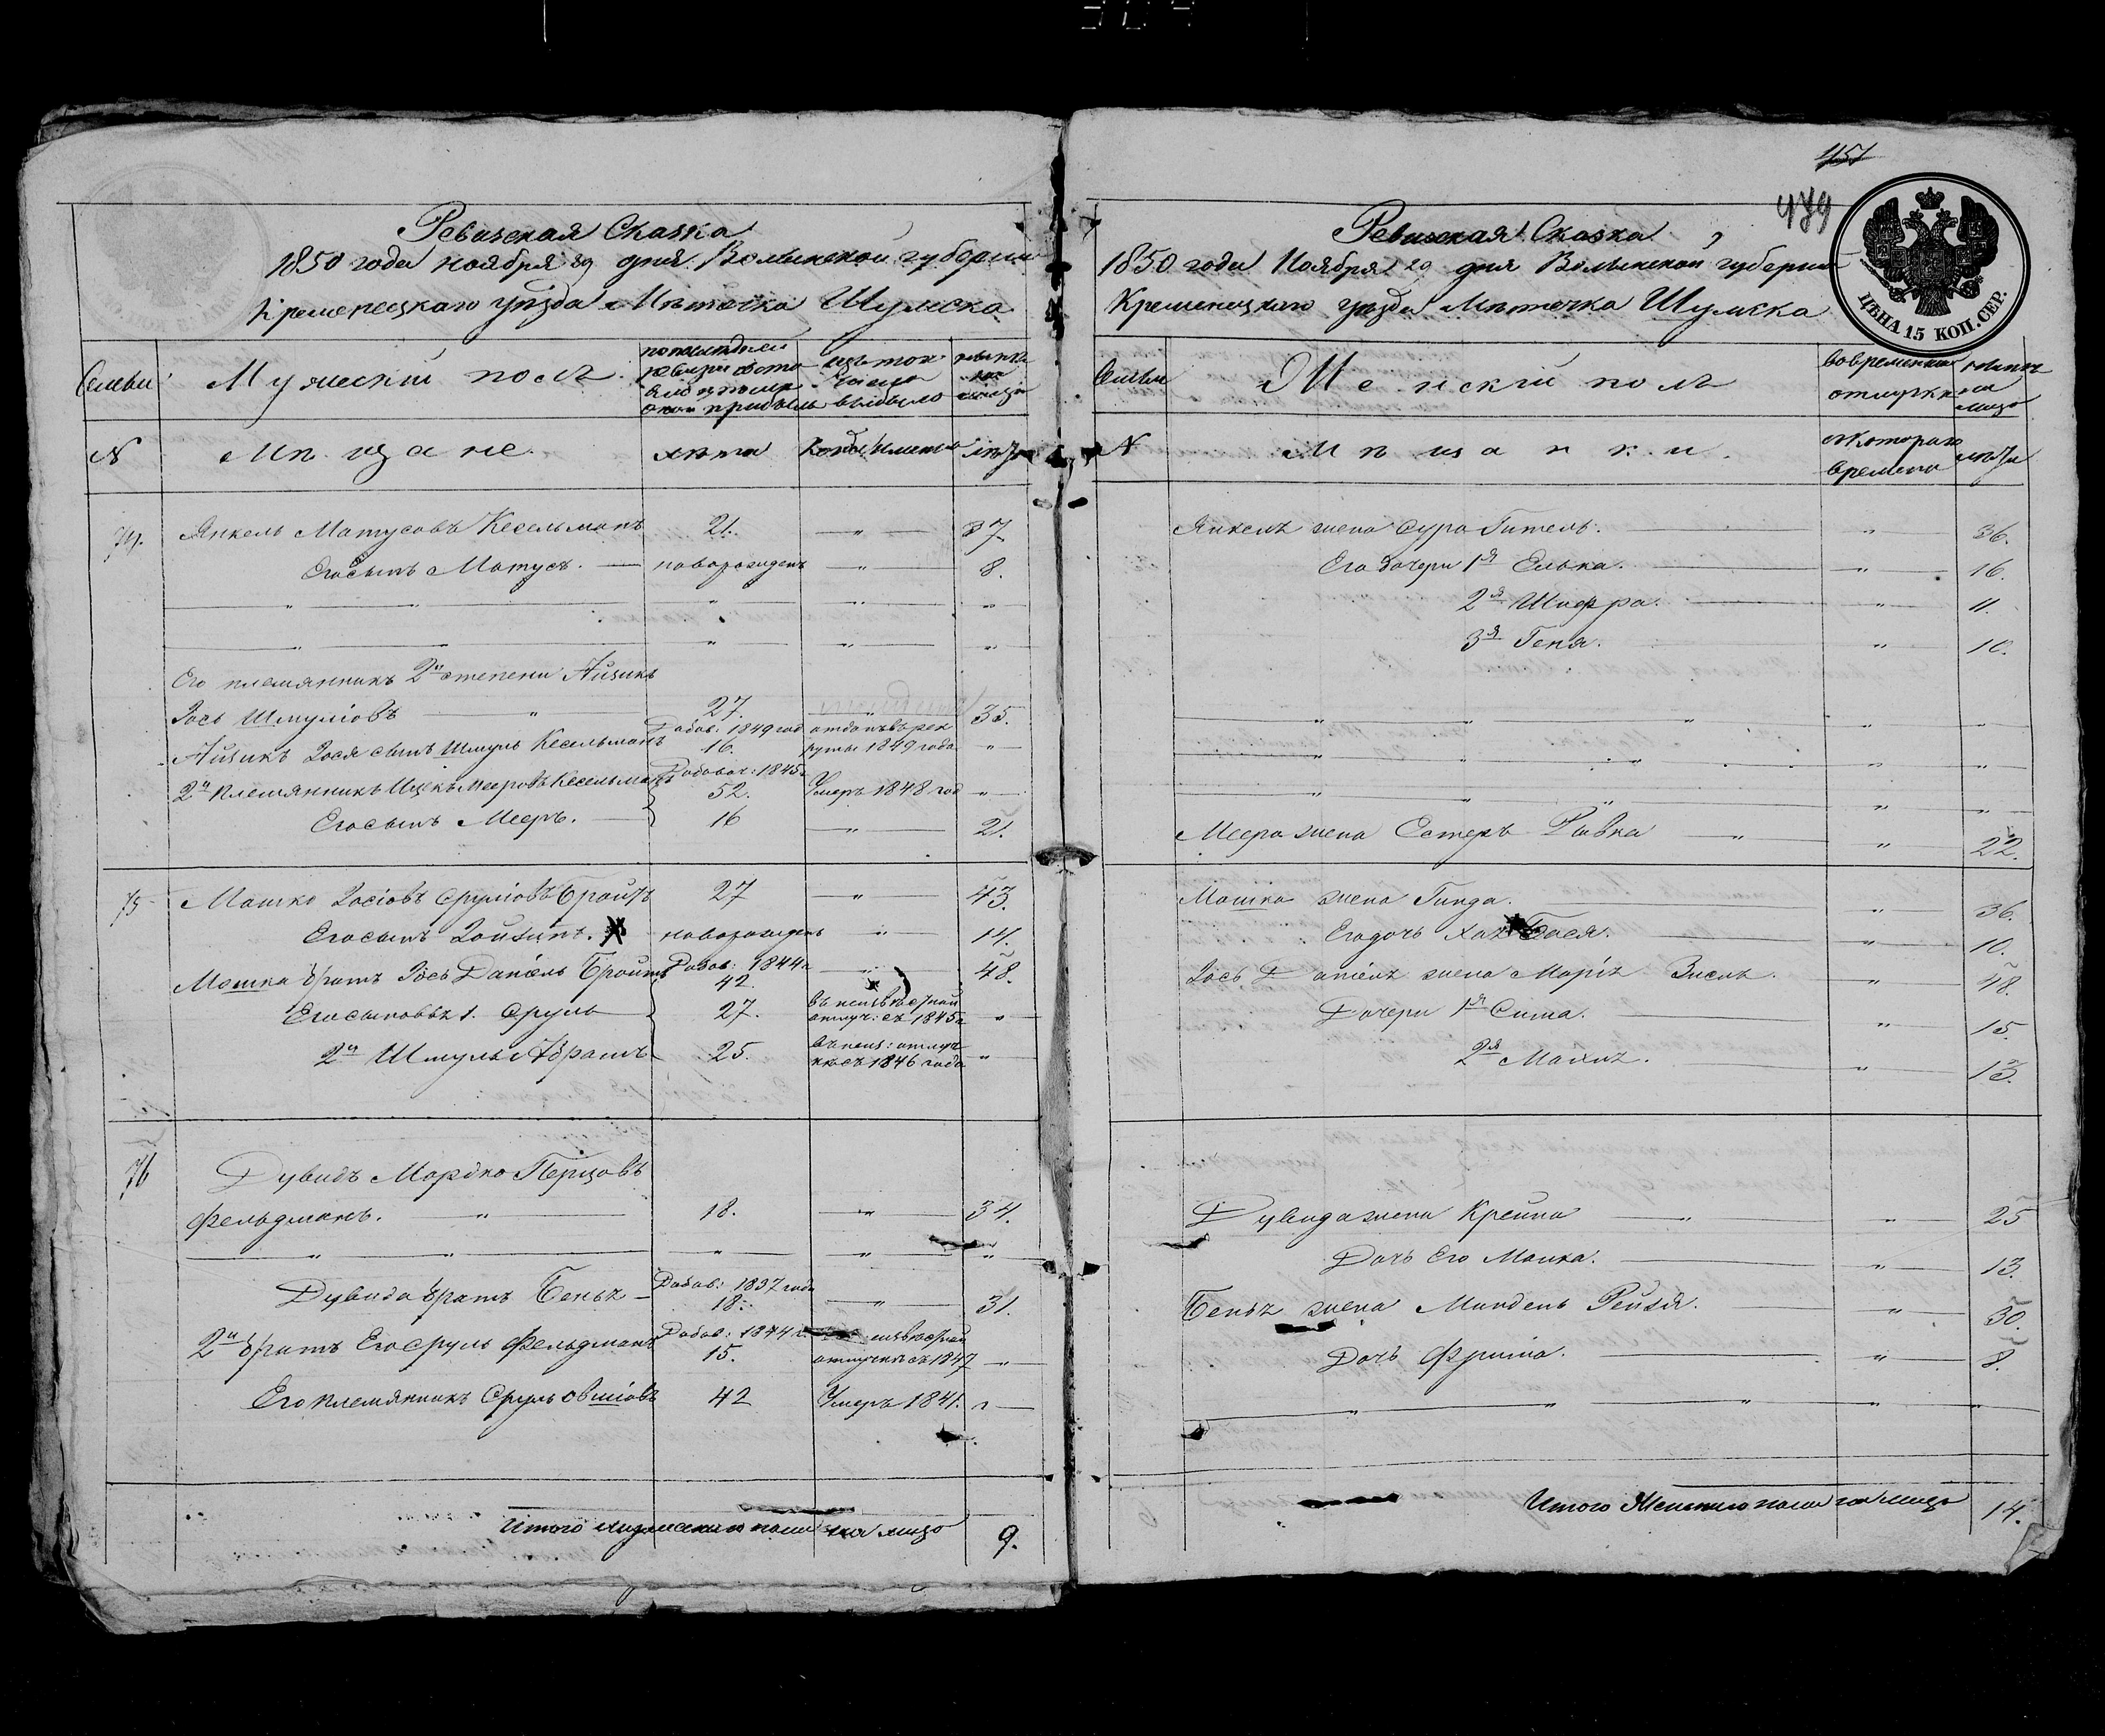 Ревизская Сказка
1850 года ноября 29 дня Волынской губернии
Кременецкаго уѣзда Мѣстечка Шумска
Семьи
Мужеский полъ
по последней ревизии состояло и после оной прибыло
изъ того числа выбыло
нынѣ на лицо
№
Мѣщане.
лѣта
Когда именно
лѣта
74. Янкель Матусовъ Кесельманъ 21. " 37.
Его сынъ Матусъ. новорожденъ " 8.
" " " " "
" " " " "
Его племянникъ 2й степени Айзикъ
Іось Шмуліовъ " 27. " 35.
Айзикъ Іося сынъ Шмуль Кесельманъ Добав: 1849 год 16. отданъ въ рекруты 1849 года "
2й племянникъ Ицкъ Мееровъ Кесельманъ Добавоч: 1845 г 52. Умеръ 1848 год "
Его сынъ Мееръ. 16 " 21.
75 Мошко Іосіовъ Сруліовъ Бройтъ 27 " 43.
Его сынъ Зойзипъ. новорожденъ " 14.
Мошка братъ Іось Даніель Бройтъ Добав: 1844 г 42. " 48.
Его сыновья 1. Сруль 27. въ неизвѣстной отлуч: съ 1845 г "
2й Шмуль Абрамъ 25. въ неиз: отлучкѣ съ 1846 года "
76 Дувидъ Мордко Перцовъ
Фельдманъ. " 18. " 34.
" " " " "
Дувида братъ Беньъ Добав: 1837 года 18. " 31.
2й братъ Его Сруль Фельдманъ Добав: 1844 г. 15. неизвѣстной отлучкѣ съ 1847 "
Его племянникъ Сруль Овшіовъ 42 Умеръ 1841. "
Итого мужескаго пола на лицо 9.
451
479
Ревизская Сказка
1850 года Ноября 29 дня Волынской губернии
Кременецкаго уѣзда Мѣстечка Шумска
ЦѢНА 15 КОП. СЕР.
Семьи
Женский полъ
Во временной отлучкѣ
нынѣ на лицо
№
Мѣщанки.
съ котораго времени
лѣта
Янкеля жена Сура Гитель. " 36.
Его дочери 1я Елька. " 16.
2я Шифра. " 11.
3я Геня. " 10.
" " " " "
" " " "
" " " " "
Меера жена Естеръ Ривка " " 22.
Мошка жена Гинда. " 36.
Его дочь Хая Бася. " 10.
Іось Даніеля жена Марія Зисль. " 48.
Дочери 1я Сима. " 15.
2я Малия. " 13.
Дувида жена Крейна " " 25
Дочь Его Малка. " 13.
Беньъ жена Миндель Рейзя. " 30.
Дочь Фрима. " 8.
" " " " "
Итого Женскаго пола на лицо 14.